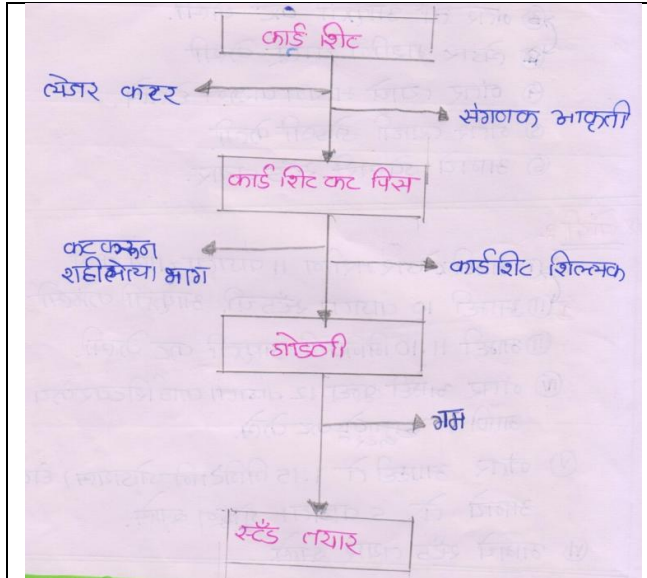 कार्ड शिट
लेजर कटर
संगणक आकृती
कार्ड शिट कट पिस
कट करून
राहीलेल्या भाग
कार्डशिट शिल्लक
जोडणी
गम
स्टँड तयार